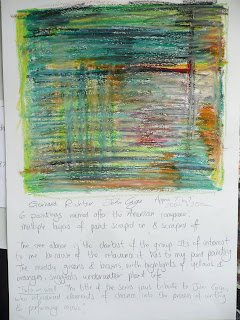 Gerhard Richter John Cage
6 paintings named after the American composer.
multiple layers of paint scraped on & scraped off
The one above is the darkest of the group. It's of interest
to me because of the relevance it has to my pond painting
The muddy greens & browns with highlights of yellows &
oranges suggests underwater plant life.
The title of the series pays tribute to John Cage,
who adjusted elements of chance into the process of writing
& performing music